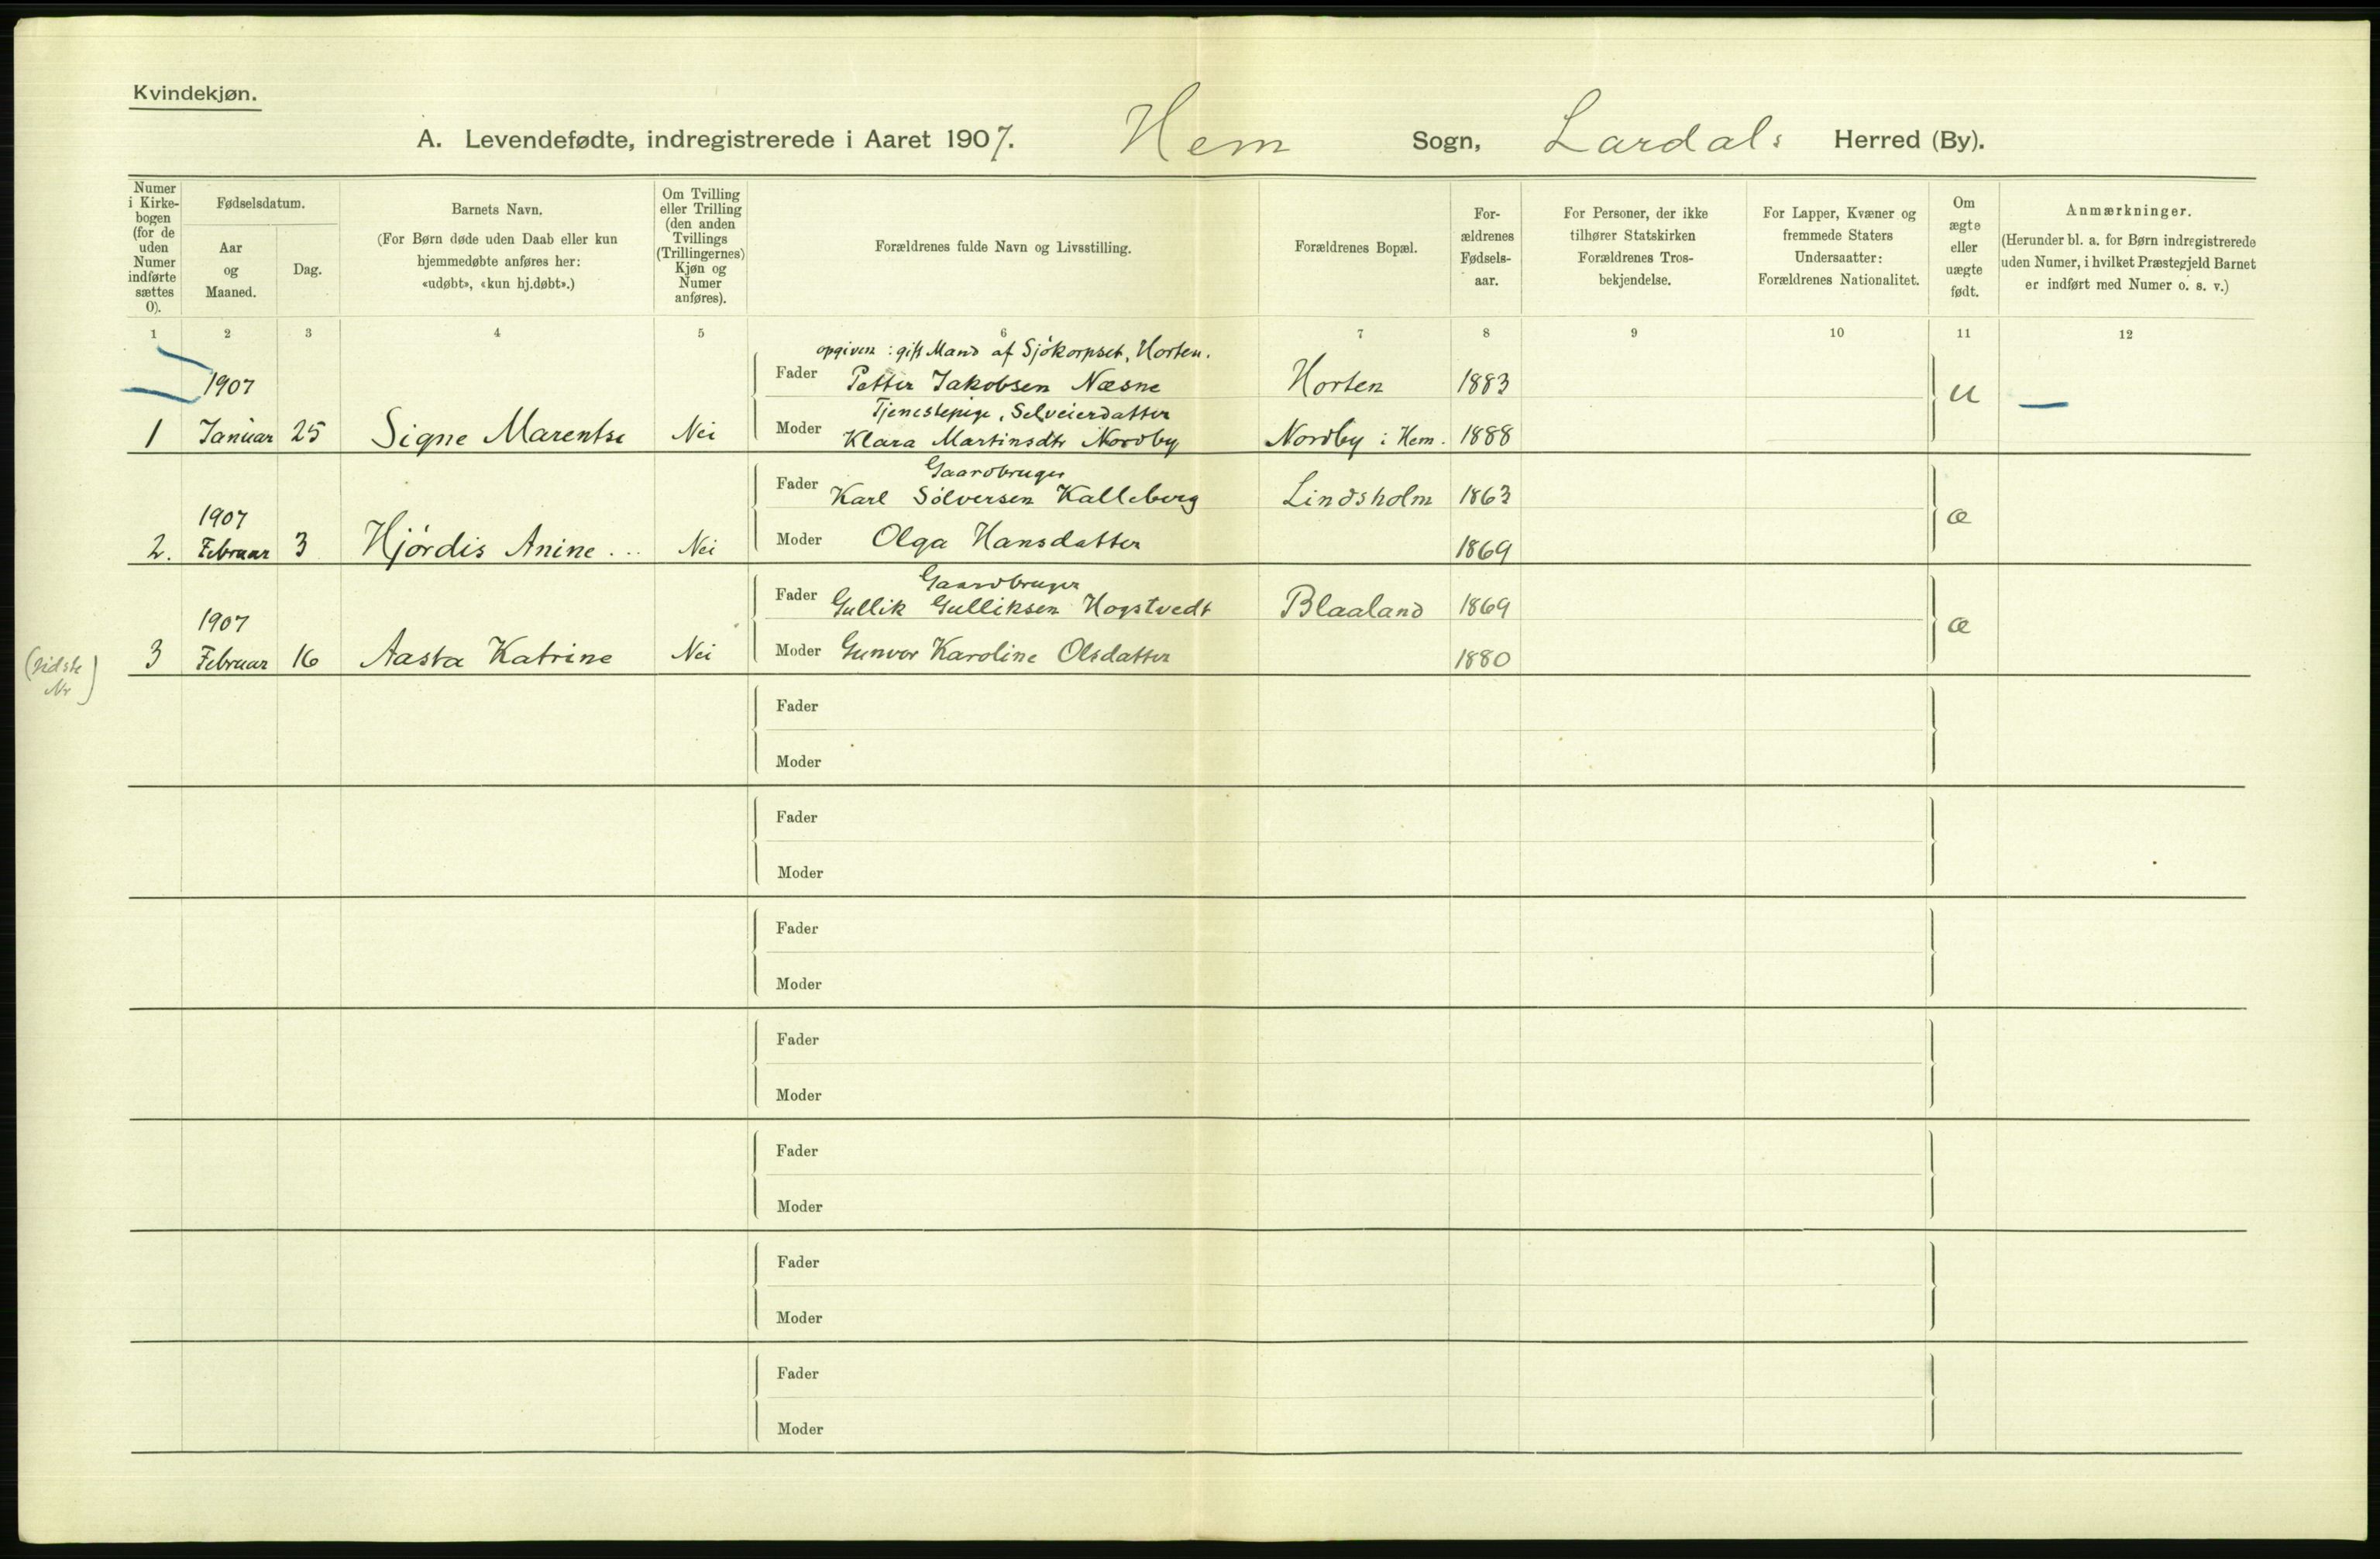 Kvindekjøn.
A. Levendefødte, indregistrerede i Aaret 1907. Hem Sogn, Lardals Herred (By).
Numer i Kirkebogen (for de uden Numer indførte sættes 0).
Fødselsdatum.
Aar og Maaned.
Dag.
Barnets Navn.
(For Børn døde uden Daab eller kun
hjemmedøbte anføres her:
«udøbt», «kun hj.døbt».)
Om Tvilling
eller Trilling
(den anden
Tvillings
(Trillingernes)
Kjøn og
Numer
anføres).
Forældrenes fulde Navn og Livsstilling.
Forældrenes Bopæl.
For-
ældrenes
Fødsels-
aar.
For Personer, der ikke
tilhører Statskirken
Forældrenes Tros-
bekjendelse.
For Lapper, Kvæner og
fremmede Staters
Undersaatter:
Forældrenes Nationalitet.
Om
ægte
eller
uægte
født.
Anmærkninger.
(Herunder bl. a. for Børn indregistrerede
uden Numer, i hvilket Præstegjeld Barnet
er indført med Numer o. s. v.)
1 2 3 4 5 6 7 8 9 10 11 12
opgiven: gift Mand af Sjökorpset, Horten.
1907 Fader Petter Jakobsen Næsne Horten 1883 u
Tjenestepige, Selveierdatter
1 Januar 25 Signe Marentse Nei Moder Klara Martinsdtr Nordby Nordby i Hem. 1888
Gaardbruger
Fader Karl Sölversen Kalleberg Lindsholm 1863
1907 æ
2. Februar 3 Hjördis Anine Nei Moder Olga Hansdatter 1869
Gaardbruger
Fader Gullik Gulliksen Hogstvedt Blaaland 1869
1907 æ
3 Februar 16 Aasta Katrine Nei Moder Gunvor Karoline Olsdatter 1880
(sidste
Nr)
Fader
Moder
Fader
Moder
Fader
Moder
Fader
Moder
Fader
Moder
Fader
Moder
Fader
Moder